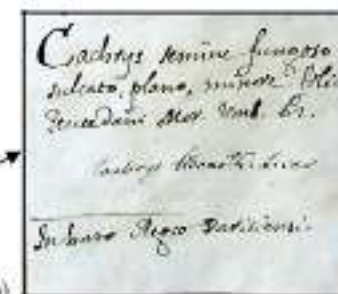 Cachrys semine fungoso
sulcato, plano, minore foli
Peucedani Mor. Umb.
Cachrys
In horto Regio Parisiensi.